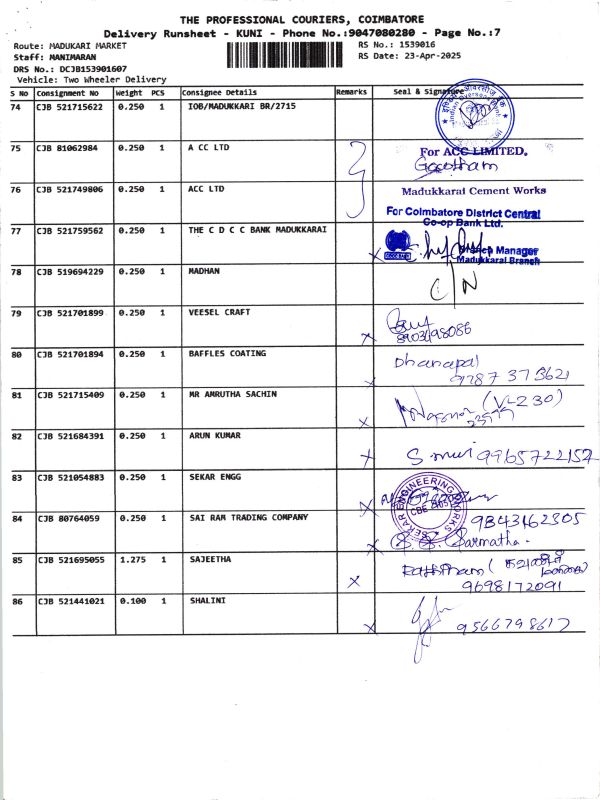 THE PROFESSIONAL COURIERS, COIMBATORE
Delivery Runsheet - KUNI - Phone No.:9047080280 - Page No.:7
Route: MADUKARI MARKET
RS No.: 1539016
Staff: MANIMARAN
RS Date: 23-Apr-2025
DRS No.: DCJB153901607
Vehicle: Two Wheeler Delivery
S No Consignment No Weight PCS Consignee Details Remarks Seal & Signature
74 CJB 521715622 0.250 1 IOB/MADUKKARI BR/2715
75 CJB 81062984 0.250 1 A CC LTD For ACC LIMITED.
Gowtham
76 CJB 521749806 0.250 1 ACC LTD Madukkarai Cement Works
For Coimbatore District Central
Co-op Bank Ltd.
77 CJB 521759562 0.250 1 THE C D C C BANK MADUKKARAI
Branch Manager
Madukkarai Branch
78 CJB 519694229 0.250 1 MADHAN C/N
79 CJB 521701899 0.250 1 VEESEL CRAFT
80 CJB 521701894 0.250 1 BAFFLES COATING Dhanapal
9787373621
81 CJB 521715409 0.250 1 MR AMRUTHA SACHIN (V-230)
82 CJB 521684391 0.250 1 ARUN KUMAR 9965722152
83 CJB 521054883 0.250 1 SEKAR ENGG
SEKAR ENGINEERING WORKS
84 CJB 80764059 0.250 1 SAI RAM TRADING COMPANY 9843162305
85 CJB 521695055 1.275 1 SAJEETHA
9698172091
86 CJB 521441021 0.100 1 SHALINI 9566798617